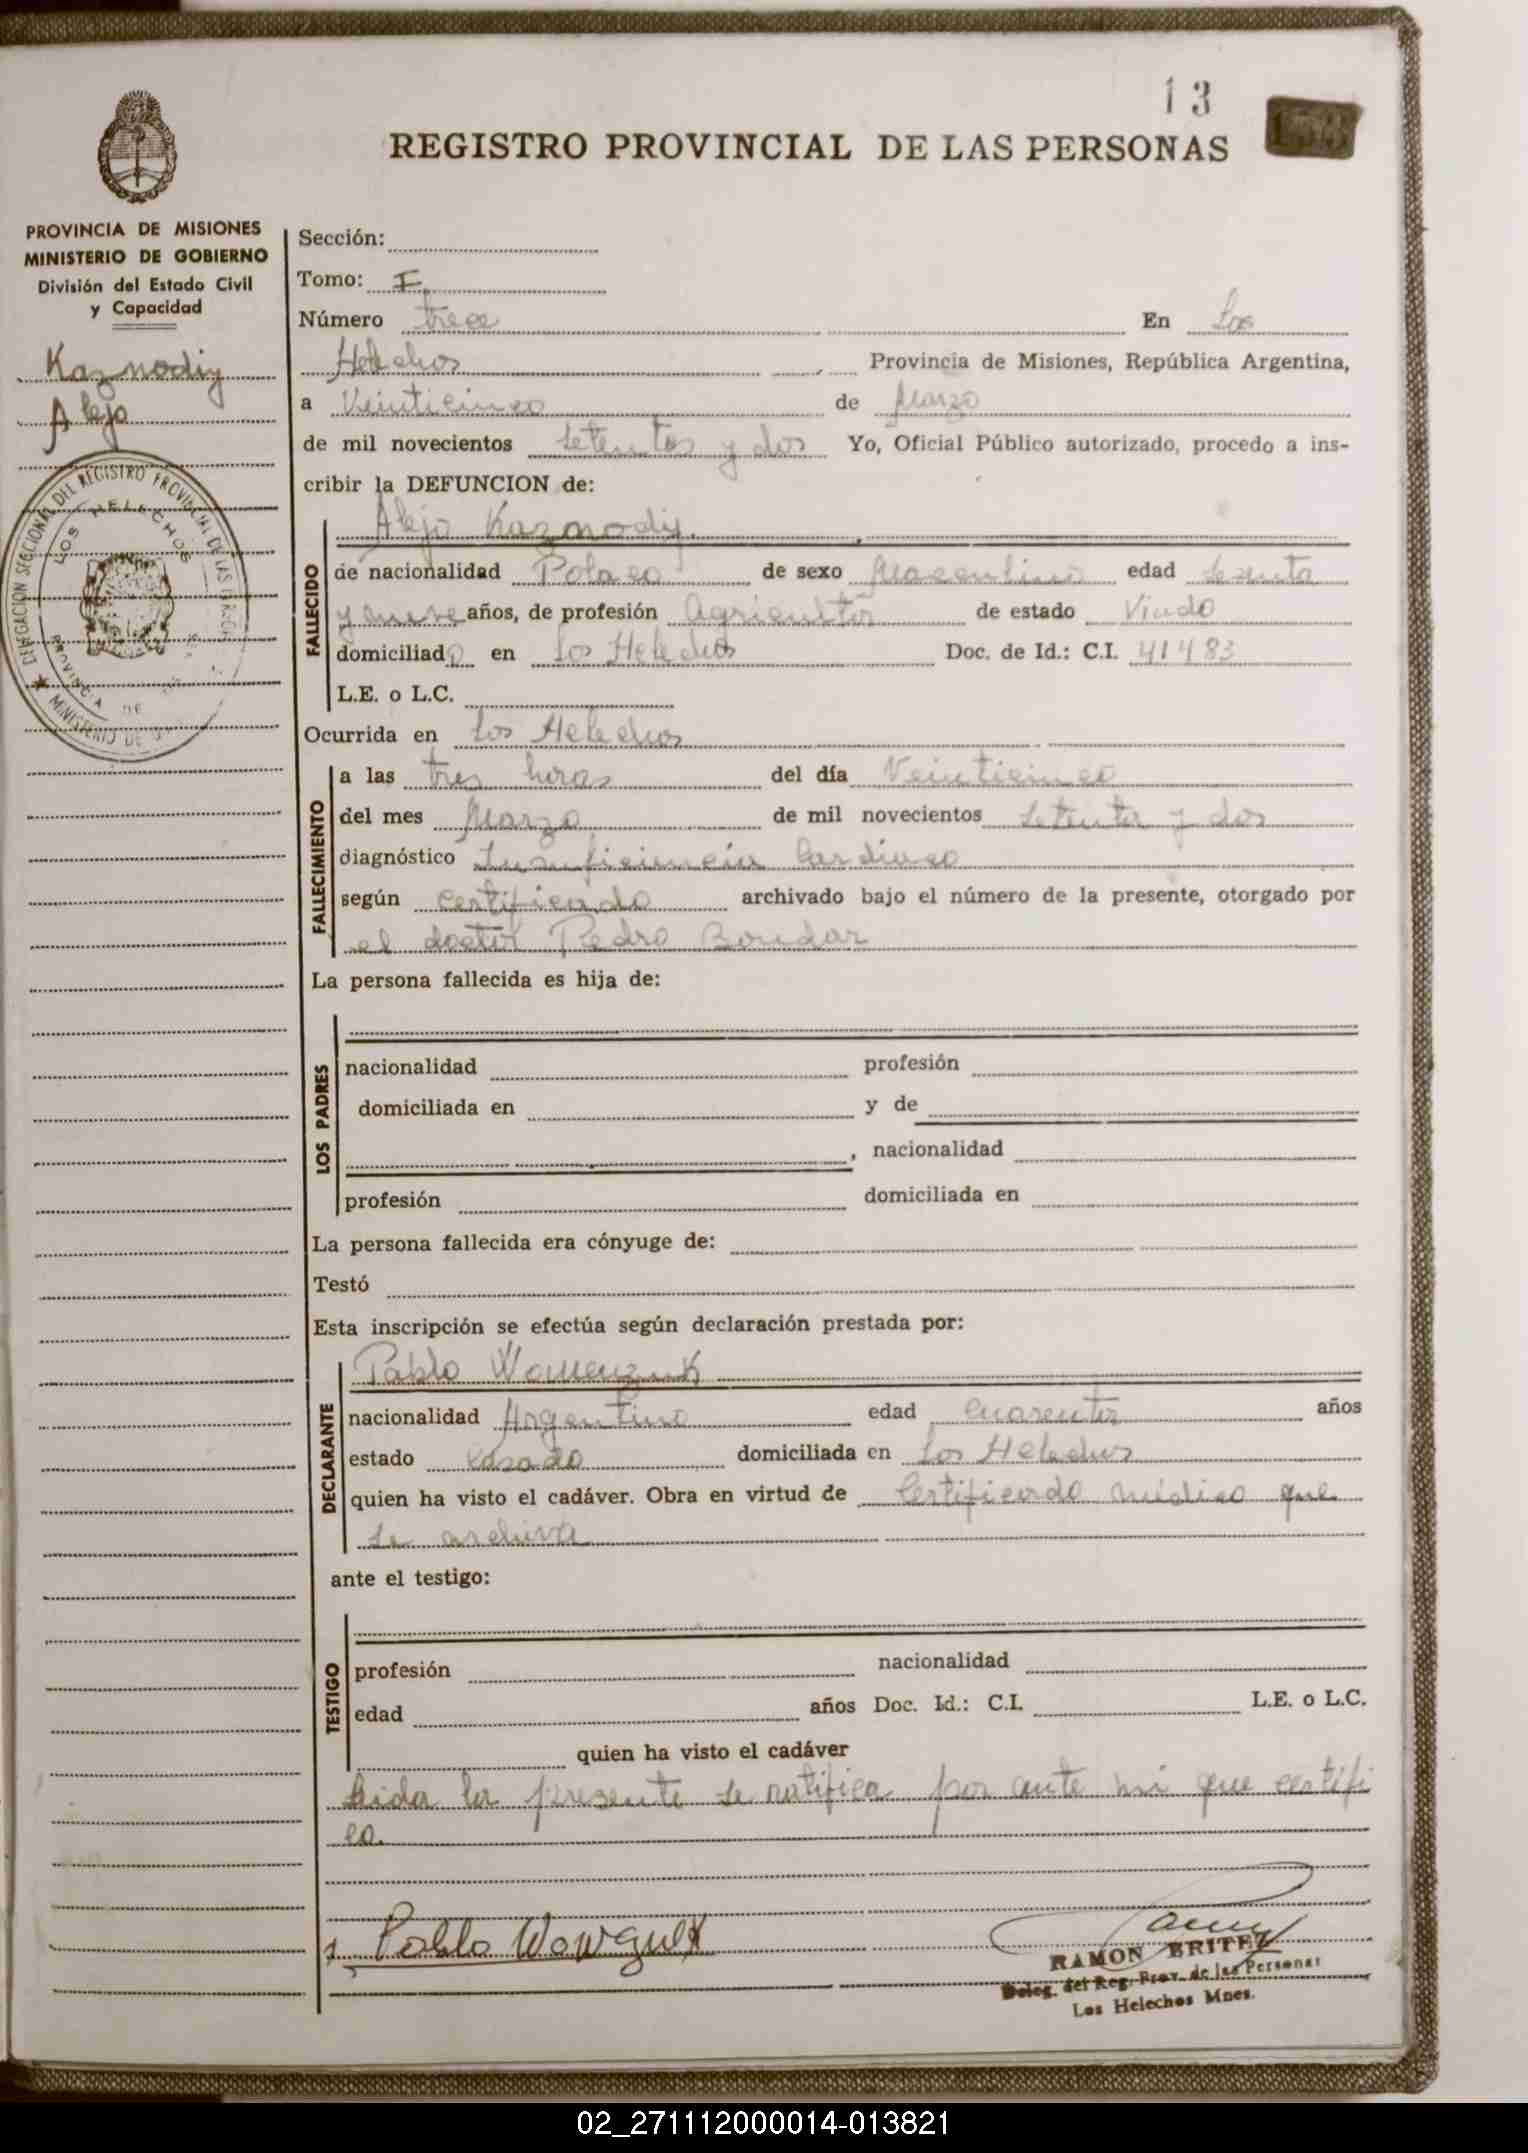 13
REGISTRO PROVINCIAL DE LAS PERSONAS
PROVINCIA DE MISIONES
MINISTERIO DE GOBIERNO
División del Estado Civil
y Capacidad
Kaznodiy
Alejo
DELEGACION SECCIONAL DEL REGISTRO PROVINCIAL DE LAS
LOS HELECHOS
PROVINCIA DE
MINISTERIO DE
Sección:
Tomo: I
Número trece En Los
Helechos Provincia de Misiones, República Argentina,
a Veinticinco de Marzo
de mil novecientos setenta y dos Yo, Oficial Público autorizado, procedo a ins-
cribir la DEFUNCION de:
FALLECIDO
Alejo Kaznodiy.
de nacionalidad Polaco de sexo Masculino edad sesenta
y nueve años, de profesión Agricultor de estado Viudo
domiciliado en Los Helechos Doc. de Id.: C.I. 41483
L.E. o L.C.
Ocurrida en Los Helechos
FALLECIMIENTO
a las tres horas del día Veinticinco
del mes Marzo de mil novecientos setenta y dos
diagnóstico Insuficiencia Cardiaca
según certificado archivado bajo el número de la presente, otorgado por
el doctor Pedro Bondar
La persona fallecida es hija de:
LOS PADRES
nacionalidad profesión
domiciliada en y de
, nacionalidad
profesión domiciliada en
La persona fallecida era cónyuge de:
Testó
Esta inscripción se efectúa según declaración prestada por:
DECLARANTE
Pablo
nacionalidad Argentino edad cuarenta años
estado casado domiciliada en Los Helechos
quien ha visto el cadáver. Obra en virtud de Certificado médico que
se archiva
ante el testigo:
TESTIGO
profesión nacionalidad
edad años Doc. Id.: C.I. L.E. o L.C.
quien ha visto el cadáver
Leida la presente se ratifica por ante mi que certifi
co.
Pablo
RAMON BRITEZ
Deleg. del Reg. Prov. de las Personas
Los Helechos Mnes.
02_271112000014-013821